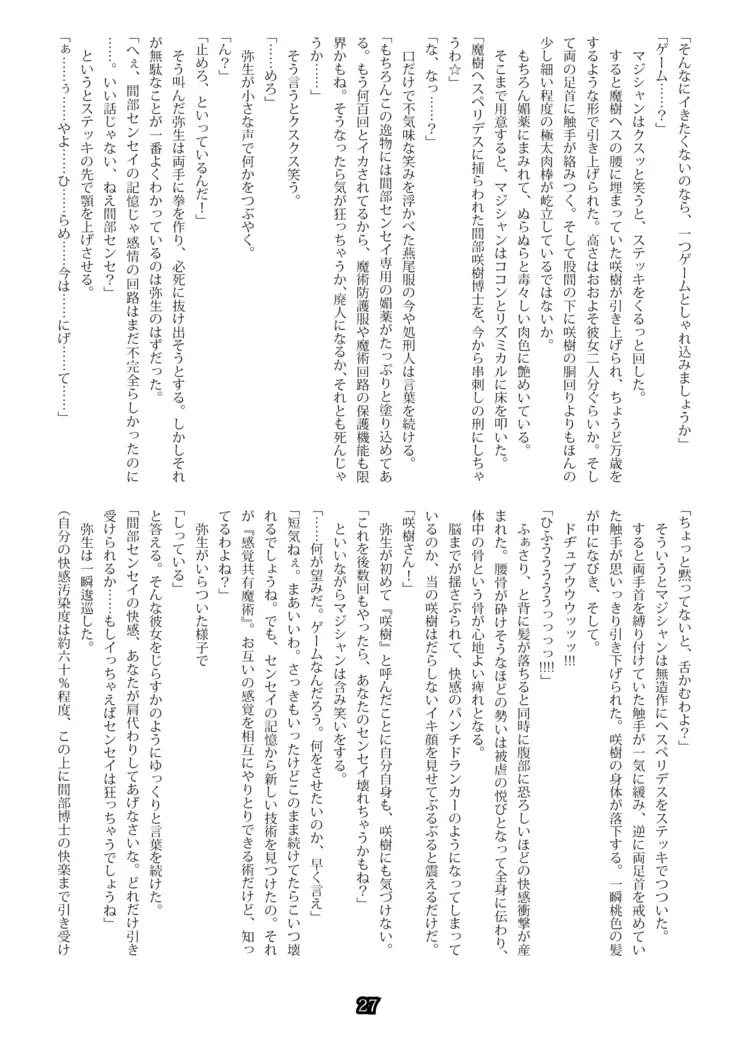 「そんなにイきたくないのなら、一つゲームとしゃれ込みましょうか」
「ゲーム……？」
　マジシャンはクスッと笑うと、ステッキをくるっと回した。
　すると魔樹ヘスの腰に埋まっていた咲樹が引き上げられ、ちょうど万歳を
するような形で引き上げられた。高さはおおよそ彼女二人分ぐらいか。そし
て両の足首に触手が絡みつく。そして股間の下に咲樹の胴回りよりもほんの
少し細い程度の極太肉棒が屹立しているではないか。
　もちろん媚薬にまみれて、ぬらぬらと毒々しい肉色に艶めいている。
　そこまで用意すると、マジシャンはココンとリズミカルに床を叩いた。
「魔樹ヘスペリデスに捕らわれた間部咲樹博士を、今から串刺しの刑にしちゃ
うわ☆」
「な、なっ……？」
　口だけで不気味な笑みを浮かべた燕尾服の今や処刑人は言葉を続ける。
「もちろんこの逸物には間部センセイ専用の媚薬がたっぷりと塗り込めてあ
る。もう何百回とイカされてるから、魔術防護服や魔術回路の保護機能も限
界かもね。そうなったら気が狂っちゃうか、廃人になるか、それとも死んじゃ
うか……」
　そう言うとクスクス笑う。
「……めろ」
　弥生が小さな声で何かをつぶやく。
「ん？」
「止めろ、といっているんだ！」
　そう叫んだ弥生は両手に拳を作り、必死に抜け出そうとする。しかしそれ
が無駄なことが一番よくわかっているのは弥生のはずだった。
「へぇ、間部センセイの記憶じゃ感情の回路はまだ不完全らしかったのに
……。いい話じゃない、ねえ間部センセ？」
　というとステッキの先で顎を上げさせる。
「ぁ……ぅ……やよ……ひ……らめ……今は……にげ……て……」
「ちょっと黙ってないと、舌かむわよ？」
　そういうとマジシャンは無造作にヘスペリデスをステッキでつついた。
　すると両手首を縛り付けていた触手が一気に緩み、逆に両足首を戒めてい
た触手が思いっきり引き下げられた。咲樹の身体が落下する。一瞬桃色の髪
が中になびき、そして。
　ドヂュプウウウッッッ!!!
「ひふううううぅっっっっ!!!!」
　ふぁさり、と背に髪が落ちると同時に腹部に恐ろしいほどの快感衝撃が産
まれた。腰骨が砕けそうなほどの勢いは被虐の悦びとなって全身に伝わり、
体中の骨という骨が心地よい痺れとなる。
　脳までが揺さぶられて、快感のパンチドランカーのようになってしまって
いるのか、当の咲樹はだらしないイキ顔を見せてぶるぶると震えるだけだ。
「咲樹さん！」
　弥生が初めて『咲樹』と呼んだことに自分自身も、咲樹にも気づけない。
「これを後数回もやったら、あなたのセンセイ壊れちゃうかもね？」
　といいながらマジシャンは含み笑いをする。
「……何が望みだ。ゲームなんだろう。何をさせたいのか、早く言え」
「短気ねぇ。まあいいわ。さっきもいったけどこのまま続けてたらこいつ壊
れるでしょうね。でも、センセイの記憶から新しい技術を見つけたの。それ
が『感覚共有魔術』。お互いの感覚を相互にやりとりできる術だけど、知っ
てるわよね？」
　弥生がいらついた様子で
「しっている」
と答える。そんな彼女をじらすかのようにゆっくりと言葉を続けた。
「間部センセイの快感、あなたが肩代わりしてあげなさいな。どれだけ引き
受けられるか……もしイっちゃえばセンセイは狂っちゃうでしょうね」
　弥生は一瞬逡巡した。
（自分の快感汚染度は約六十％程度、この上に間部博士の快楽まで引き受け
27